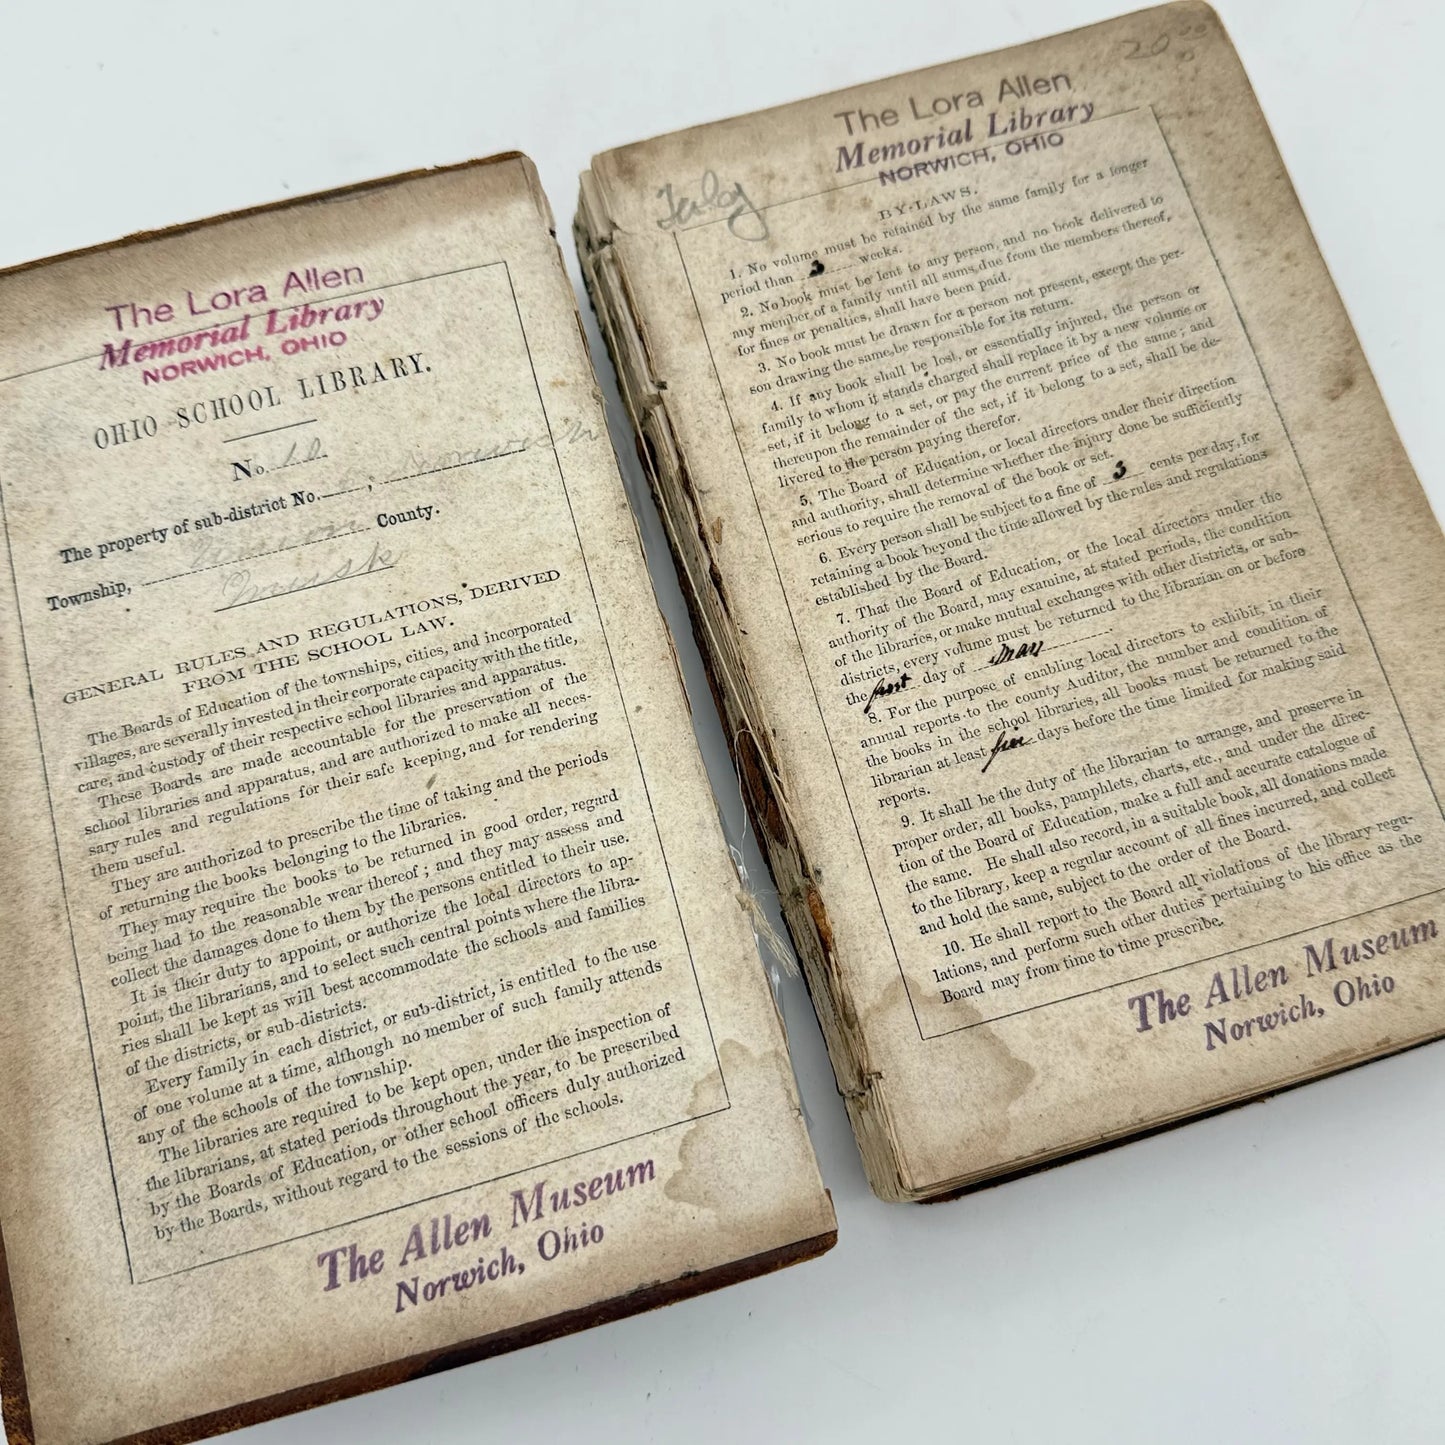 The Lora Allen
Memorial Library
NORWICH, OHIO
OHIO SCHOOL LIBRARY.
No. 10
The property of sub-district No. , Norwich
Township, County.
GENERAL RULES AND REGULATIONS, DERIVED
FROM THE SCHOOL LAW.
The Boards of Education of the townships, cities, and incorporated
villages, are severally invested in their corporate capacity with the title,
care, and custody of their respective school libraries and apparatus.
These Boards are made accountable for the preservation of the
school libraries and apparatus, and are authorized to make all neces-
sary rules and regulations for their safe keeping, and for rendering
them useful.
They are authorized to prescribe the time of taking and the periods
of returning the books belonging to the libraries.
They may require the books to be returned in good order, regard
being had to the reasonable wear thereof; and they may assess and
collect the damages done to them by the persons entitled to their use.
It is their duty to appoint, or authorize the local directors to ap-
point, the librarians, and to select such central points where the libra-
ries shall be kept as will best accommodate the schools and families
of the districts, or sub-districts.
Every family in each district, or sub-district, is entitled to the use
of one volume at a time, although no member of such family attends
any of the schools of the township.
The libraries are required to be kept open, under the inspection of
the librarians, at stated periods throughout the year, to be prescribed
by the Boards of Education, or other school officers duly authorized
by the Boards, without regard to the sessions of the schools.
The Allen Museum
Norwich, Ohio
20.00
The Lora Allen
Memorial Library
NORWICH, OHIO
BY-LAWS.
1. No volume must be retained by the same family for a longer
period than 3 weeks.
2. No book must be lent to any person, and no book delivered to
any member of a family until all sums due from the members thereof,
for fines or penalties, shall have been paid.
3. No book must be drawn for a person not present, except the per-
son drawing the same be responsible for its return.
4. If any book shall be lost, or essentially injured, the person or
family to whom it stands charged shall replace it by a new volume or
set, if it belong to a set, or pay the current price of the same; and
thereupon the remainder of the set, if it belong to a set, shall be de-
livered to the person paying therefor.
5. The Board of Education, or local directors under their direction
and authority, shall determine whether the injury done be sufficiently
serious to require the removal of the book or set.
6. Every person shall be subject to a fine of 3 cents per day, for
retaining a book beyond the time allowed by the rules and regulations
established by the Board.
7. That the Board of Education, or the local directors under the
authority of the Board, may examine, at stated periods, the condition
of the libraries, or make mutual exchanges with other districts, or sub-
districts, every volume must be returned to the librarian on or before
the first day of May
8. For the purpose of enabling local directors to exhibit, in their
annual reports to the county Auditor, the number and condition of
the books in the school libraries, all books must be returned to the
librarian at least five days before the time limited for making said
reports.
9. It shall be the duty of the librarian to arrange, and preserve in
proper order, all books, pamphlets, charts, etc., and under the direc-
tion of the Board of Education, make a full and accurate catalogue of
the same. He shall also record, in a suitable book, all donations made
to the library, keep a regular account of all fines incurred, and collect
and hold the same, subject to the order of the Board.
10. He shall report to the Board all violations of the library regu-
lations, and perform such other duties pertaining to his office as the
Board may from time to time prescribe.
The Allen Museum
Norwich, Ohio